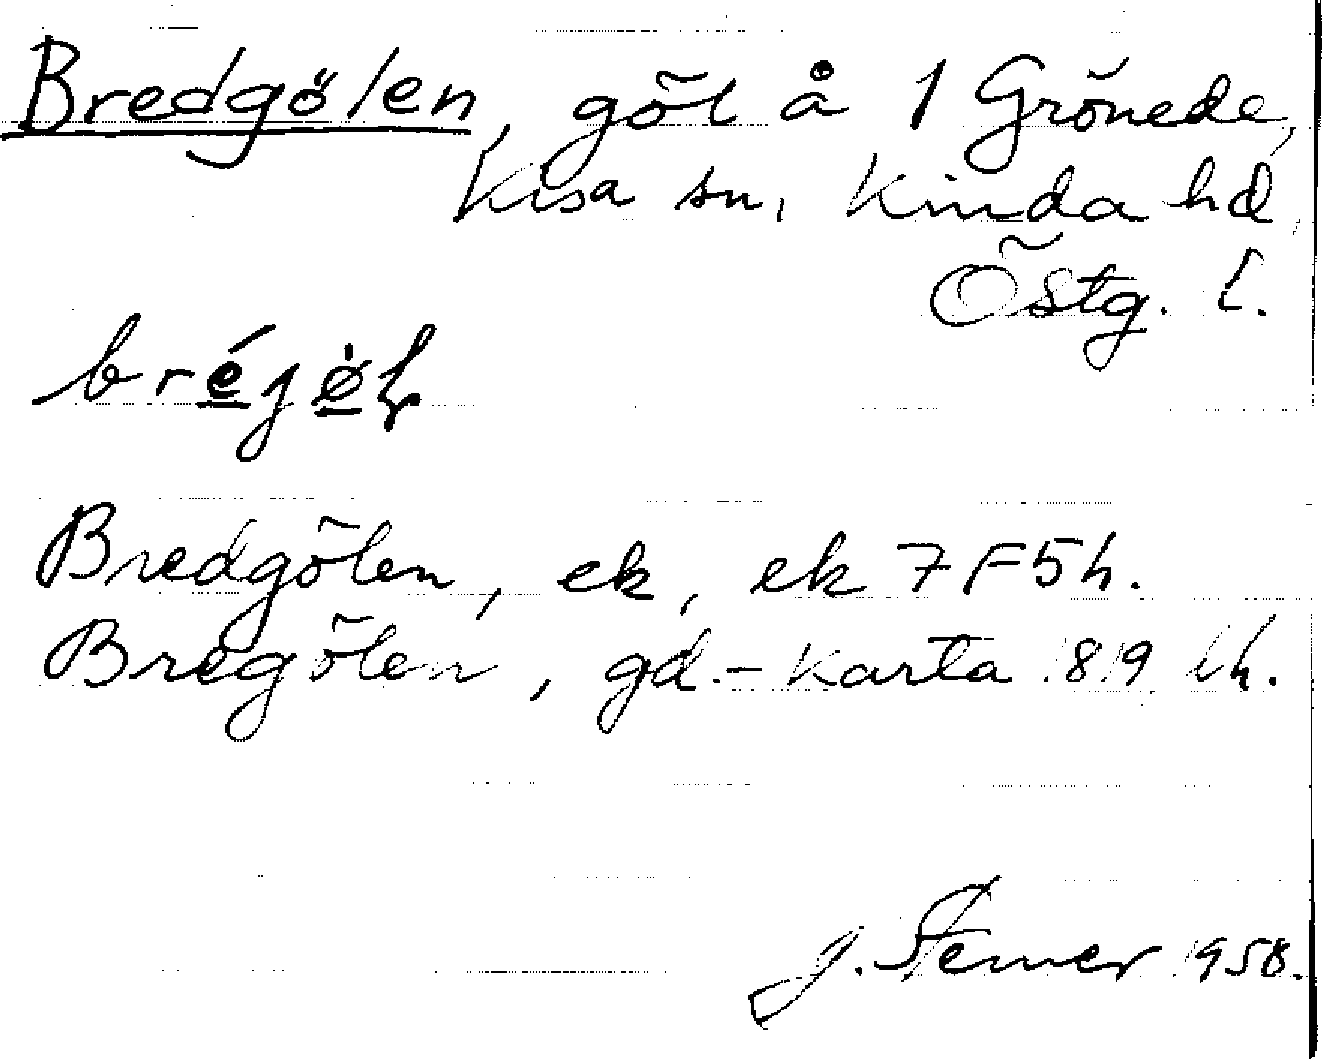 Bredgölen, göl å 1 Grönede,
Kisa sn, Kinda hd,
Östg. l.
Bredgölen, ek, ek 7F5h.
Bregölen, gd.-karta 1819 lh.
J. Sterner 1958.